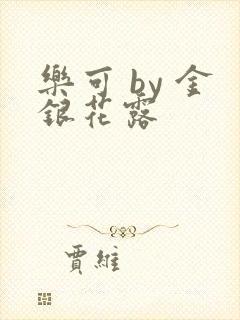 樂可 by 金
銀花露
賈維